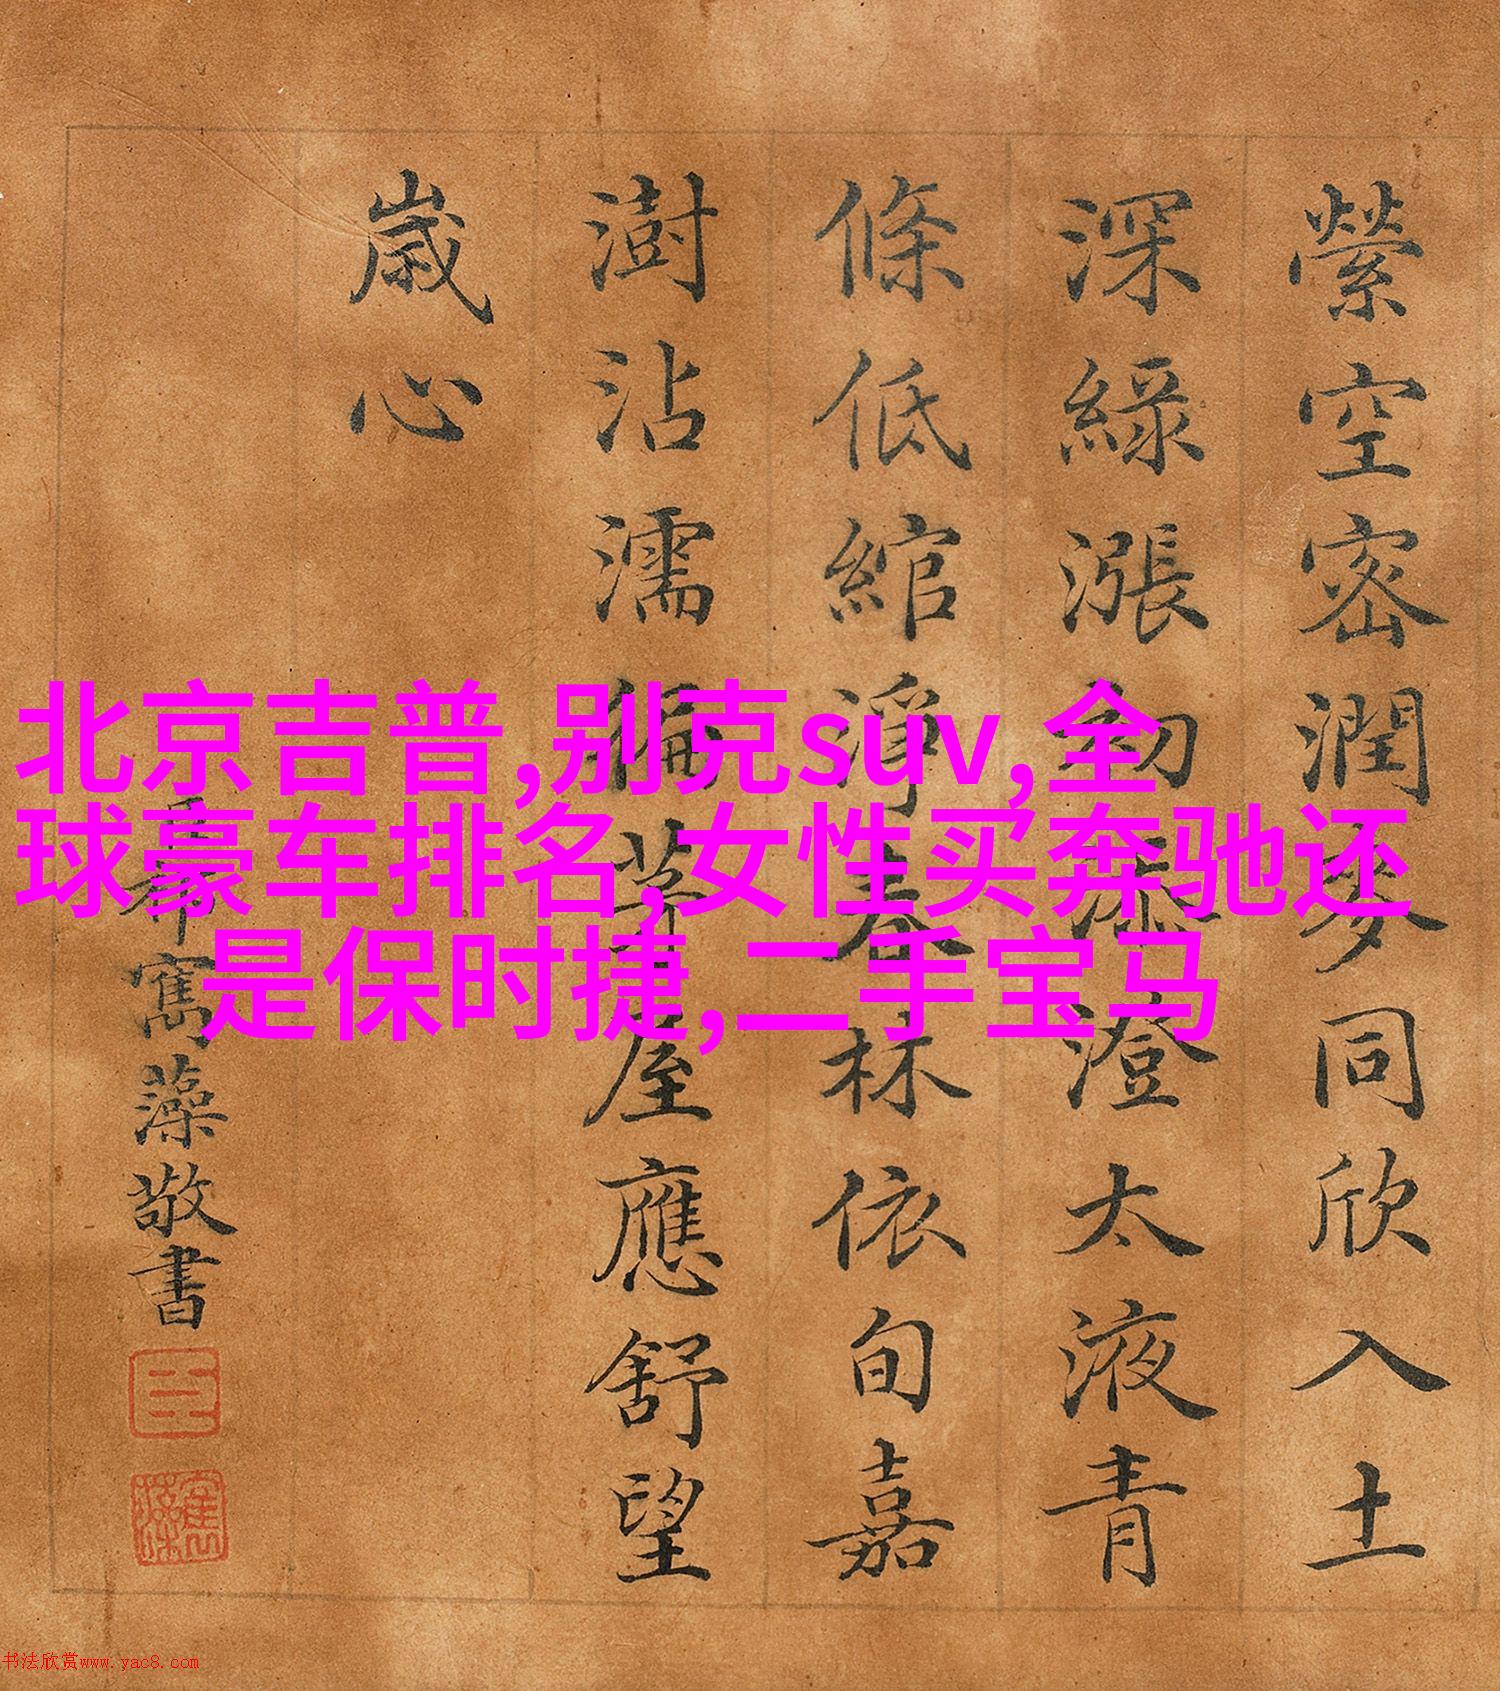 縈空密潤麥同欣入土
深綠漲初添澄太液青
條低綰淨春林依旬嘉
澍沾濡徧茅屋應舒望
歲心
寯藻敬書
臣
寯藻
北京吉普,别克suv,全
球豪车排名,女性买奔驰还
是保时捷,二手宝马
书法欣赏www.yac8.com